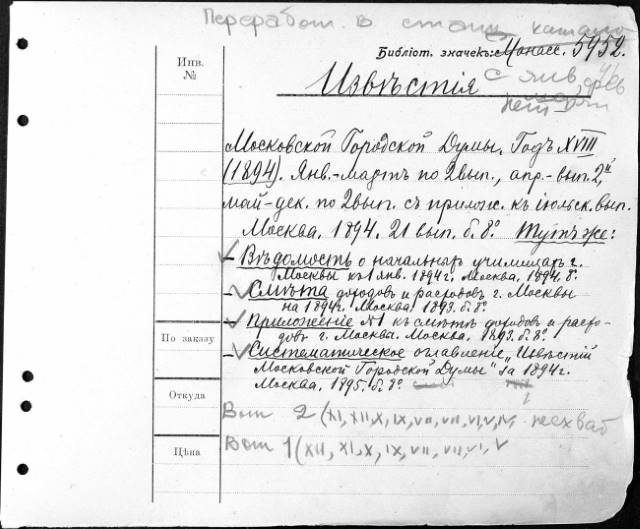 Переработ. в стат. катало
Библіот. значекъ: Монасс. 5952.
Инв.
№
Извѣстія
с янв фев
нет
Московской Городской Думы. Годъ XVIII
(1894). Янв.-мартъ по 2 вып., апр.-вып. 2й,
май-дек. по 2 вып. съ прилож. къ іюльск. вып.
Москва. 1894. 21 вып. б. 8°. Тутъ же:
– Вѣдомость о начальных училищах г.
Москвы къ 1 янв. 1894 г. Москва. 1894. 8°.
– Смѣта доходовъ и расходовъ г. Москвы
на 1894 г. Москва. 1893. б. 8°.
– Приложеніе №1 къ смѣтѣ доходовъ и расхо-
довъ г. Москва. Москва. 1893. б. 8°.
По заказу
– Систематическое оглавленіе „Извѣстій
Московской Городской Думы" за 1894 г.
Москва. 1895. б. 8°.
Откуда
Вып 2 (XI, XII, X, IX, VII, VII, VI, V, IV, нехваб
Цѣна
Вып 1 (XII, XI, X, IX, VII, VII, VI, V